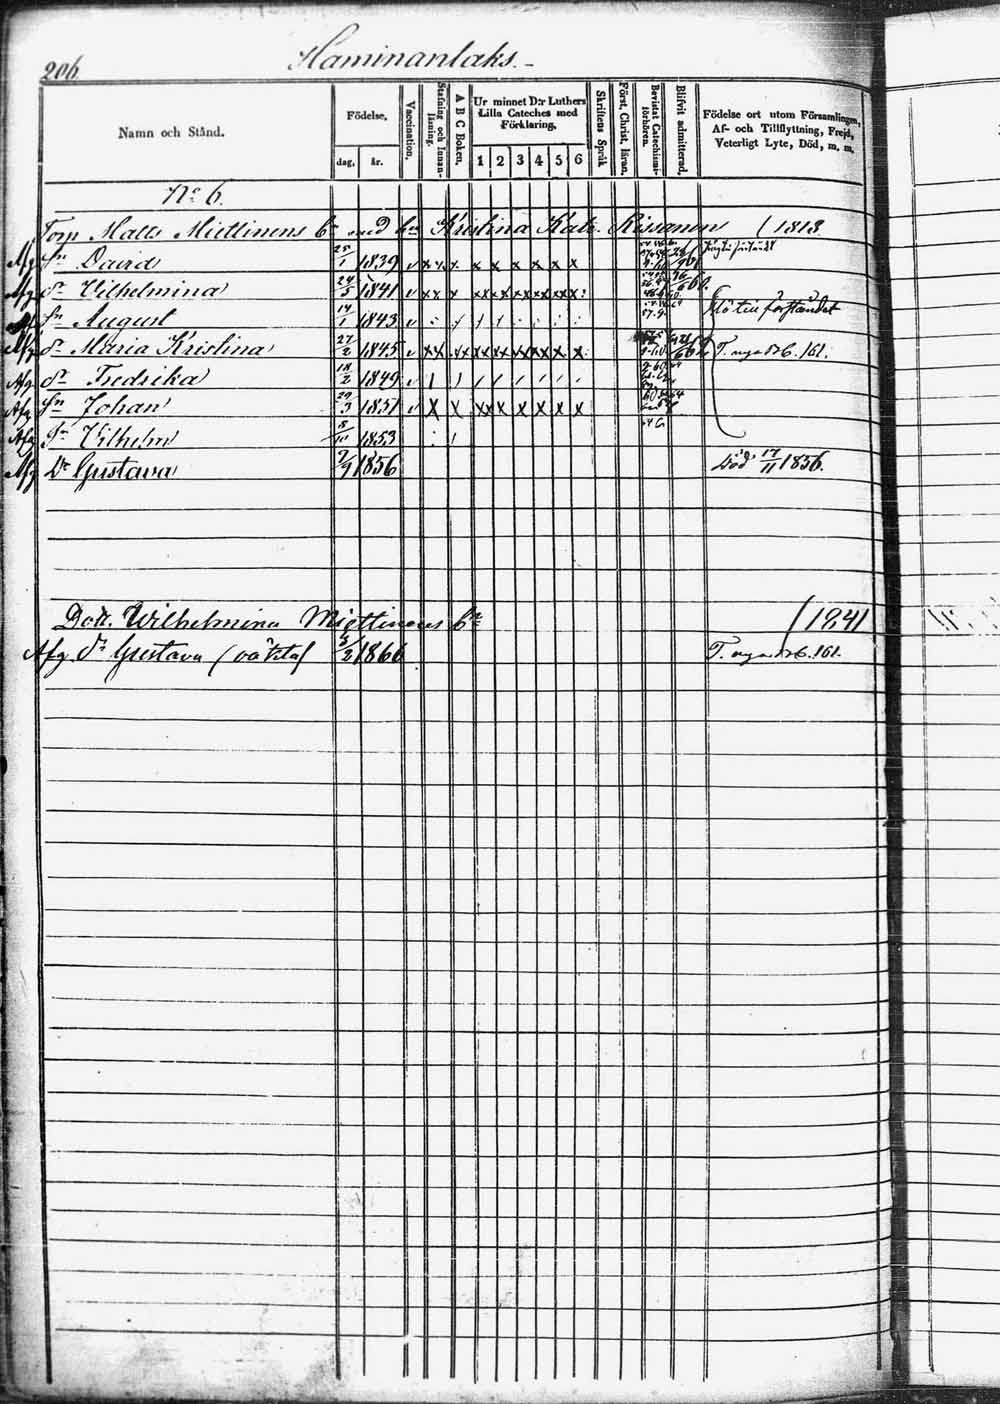 206.
Haminanlaks.
Namn och Stånd.
Födelse,
dag,
år.
Vaccination.
Stafning och Innanläsning.
A B C Boken.
Ur minnet D:r Luthers Lilla Cateches med Förklaring.
1 2 3 4 5 6
Skriftens Språk
Först. Christ. läran.
Bevistat Catechismiförhören.
Blifvit admitterad.
Födelse ort utom Församlingen, Af- och Tillflyttning, Frejd, Veterligt Lyte, Död, m. m.
No 6.
Torp Matts Miettinens bn med hu Kristina Katr. Rissanen (1813.
Afg Sn David 25/1 1839 v
Afg dr Vilhelmina 24/5 1841 v
Afg Sn August 14/1 1843 v Slö till förståndet
Afg dr Maria Kristina 27/2 1845 v T. nya B. 161.
Afg dr Fredrika 18/2 1849 v
Afg Sn Johan 29/3 1851 v
Afg Sn Vilhelm 8/10 1853
Afg Dr Gustava 7/9 1856 Död 17/11 1856.
Dott. Wilhelmina Miettinens bn (1841
Afg dr Gustava (oäkta) 5/2 1866 T. nya B. 161.